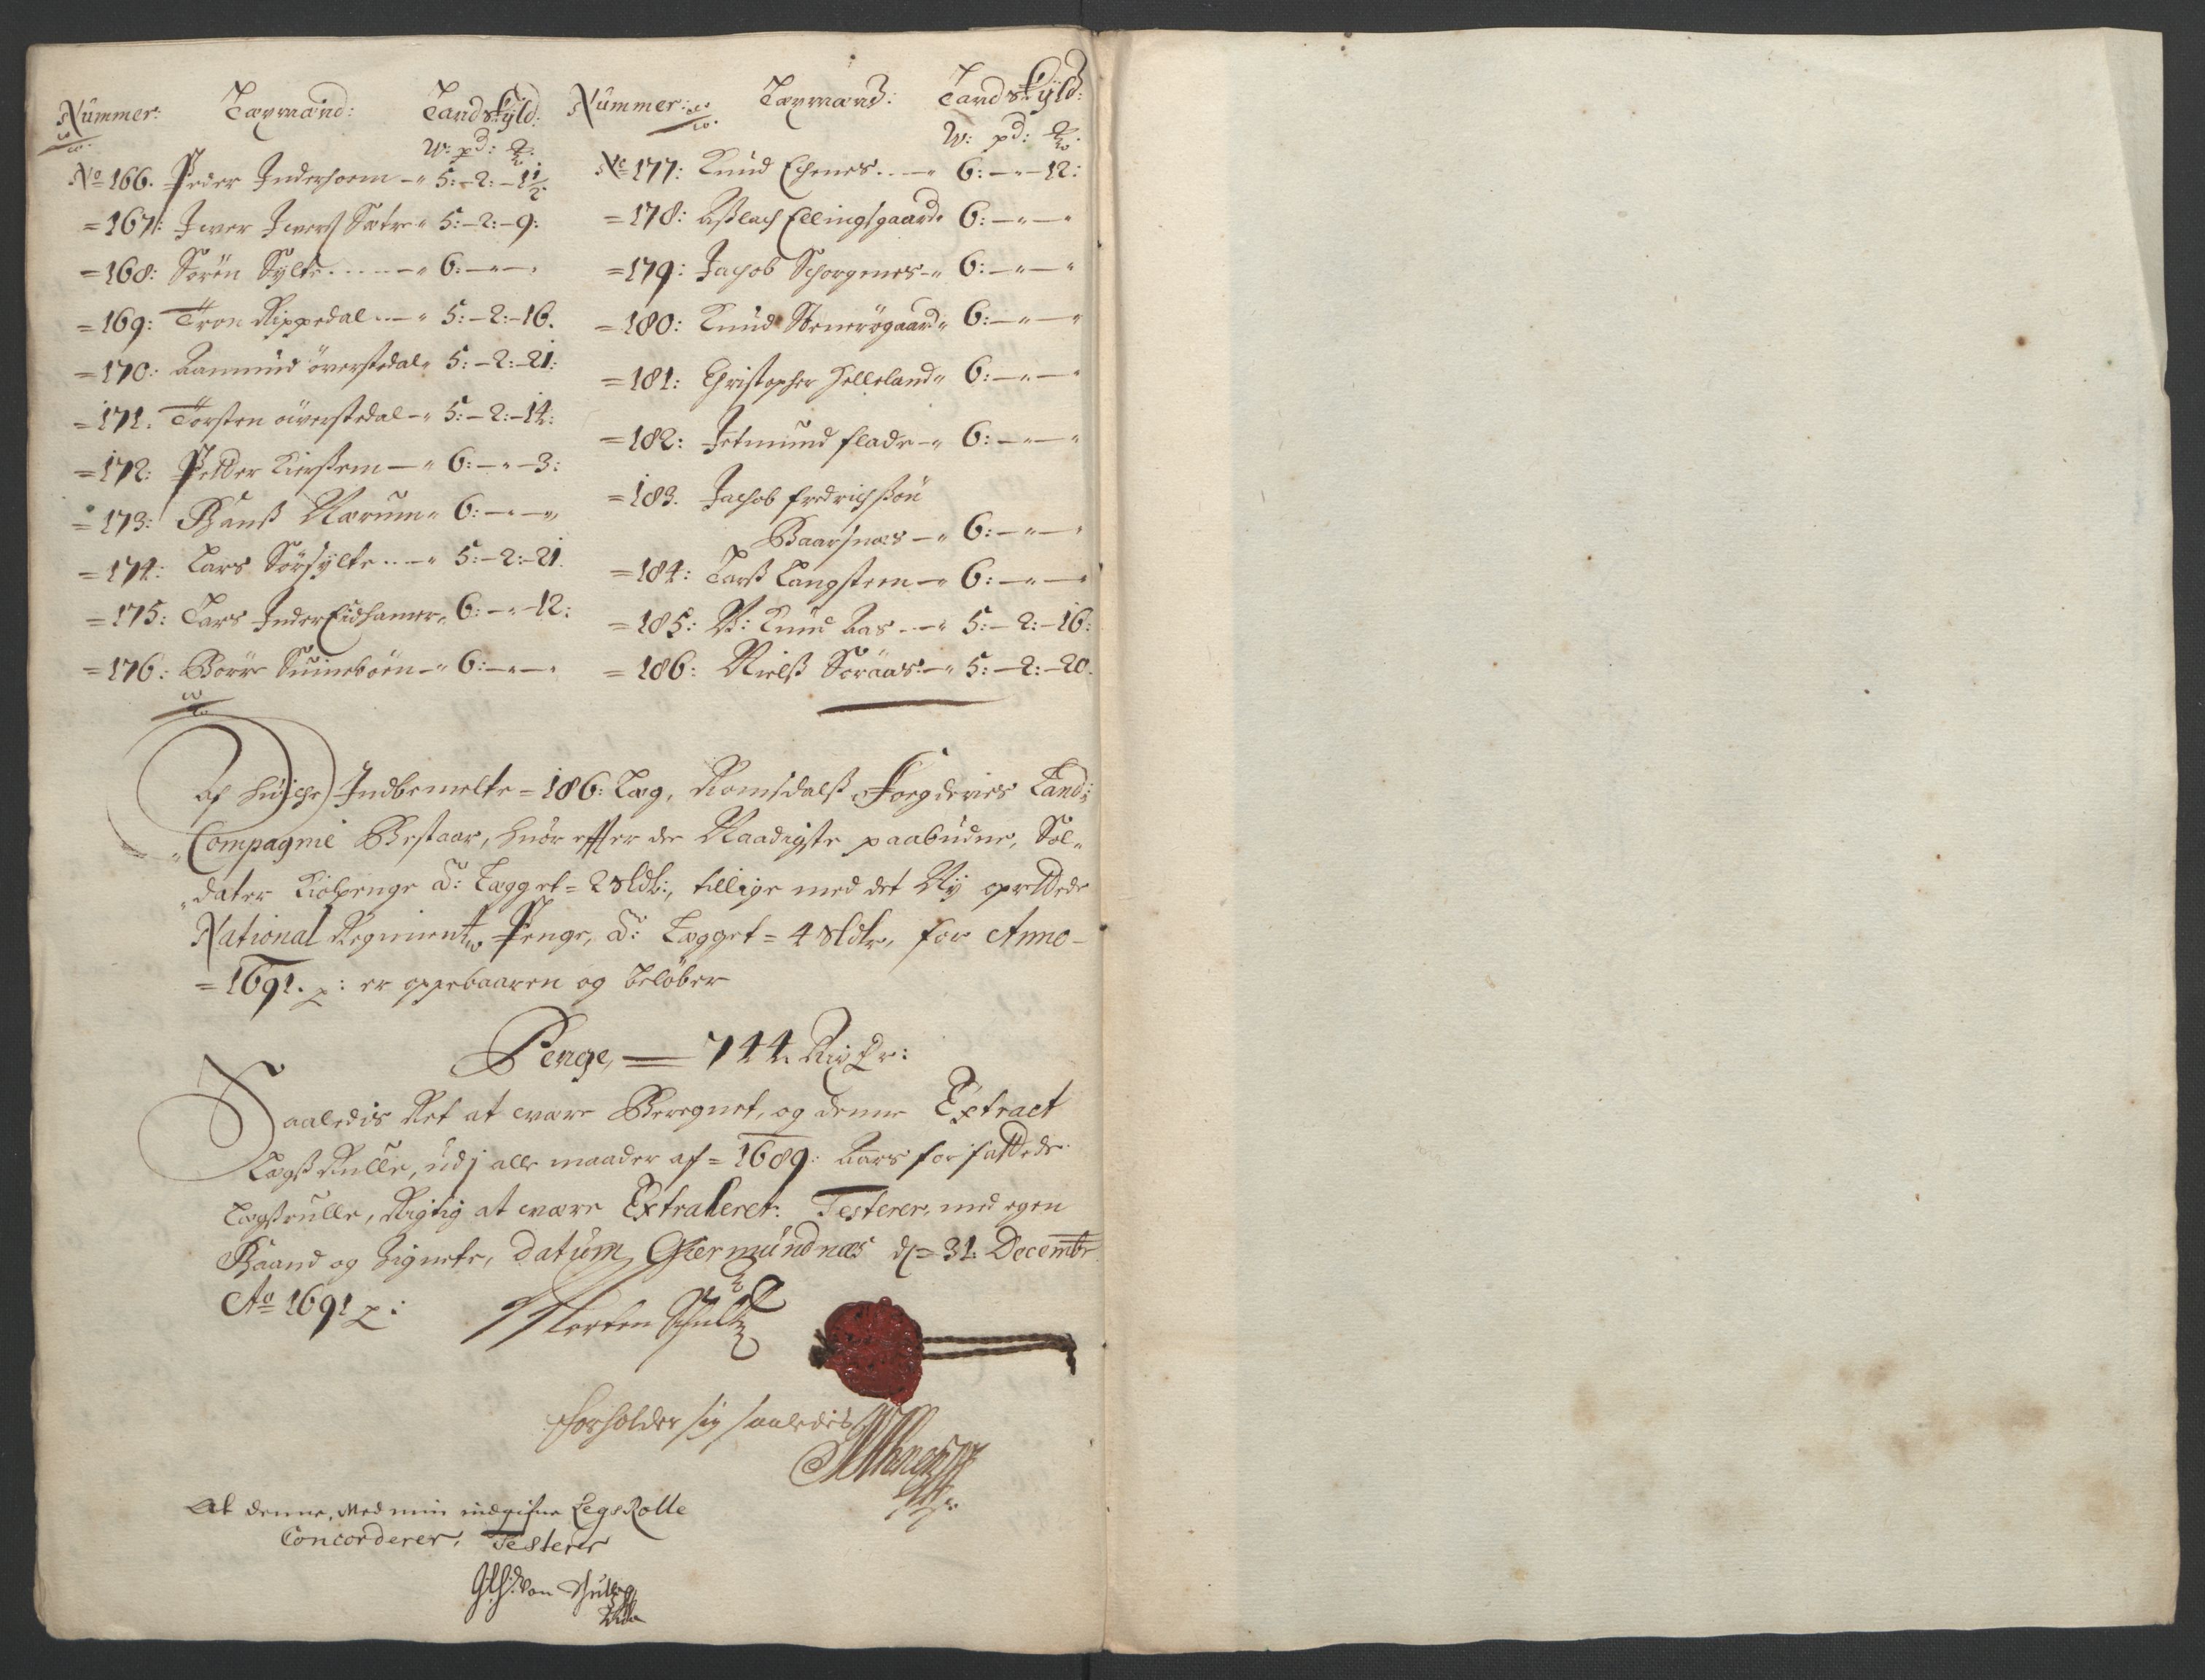 Nummer: Lægmænd: Landskyld:
W: pd: 
No 166. Peder Inderhorm 5:-2:-1½
=167: Iwer Iwerß Sætre 5:-2:-9:
=168: Sörön Sylte..... 6:
=169: Tron Rippedal 5:-2:-16.
=170: Aamund överstedal 5:-2:-21:
=171. Torsten överstedal 5:-2:-14:
=172: Petter Kierßem 6:-"-3:
=173: Hanß Nærum 6:
=174: Lars Sörsylte 5:-2:-21.
=175: Lars InderEidhamer 6:-"-12:
=176: Börre Suineböen 6:
Nummer: Lægmand: Landskyld:
W: pd: 
No 177: Knud Echenes 6:-"-12:
=178: Aßlach Ellingsgaard 6:
=179: Jachob Schorgenes 6:
=180: Knud Stenerögaard 6:
=181: Christopher Helleland 6:
=182: Jetmund flade 6:
=183. Jachob fredrichßön
Baarsnæs 6:
=184: Larß Langsteen 6:
=185: N: Knud Aas 5:-2:-16:
=186: Nielß Söraas 5:-2:-20.
Af huilche Indbemelte =186: Læg, Romsdalß Fogderies Land-
Compagnie Bestaar, huor effter de Naadigste paabudne, Sol-
dater Kiolpenge â: Lægget = 2 Sldlr:, tillige med det Ny oprettede
National Regiments Penge, â: Lægget = 4 Sldlr, for Anno
=1691. p: er oppebaaren og belöber
Penge, = 744. Rixdr:
Saaledis Ret at være Beregnet, og denne Extract
Lægß Rulle, udj alle maader af =1689: Aars forfattede
Lægßrulle, Rigtig at være Extraheret. Testerer, med egen
Haand og Zignete, Datum Giermundnæs d = 31. Decembr
Ao 1691 p:
Morten Schultz
forholder sig saaledis
At denne, Med min indgifne LegsRolle
Concorderer, Testerer